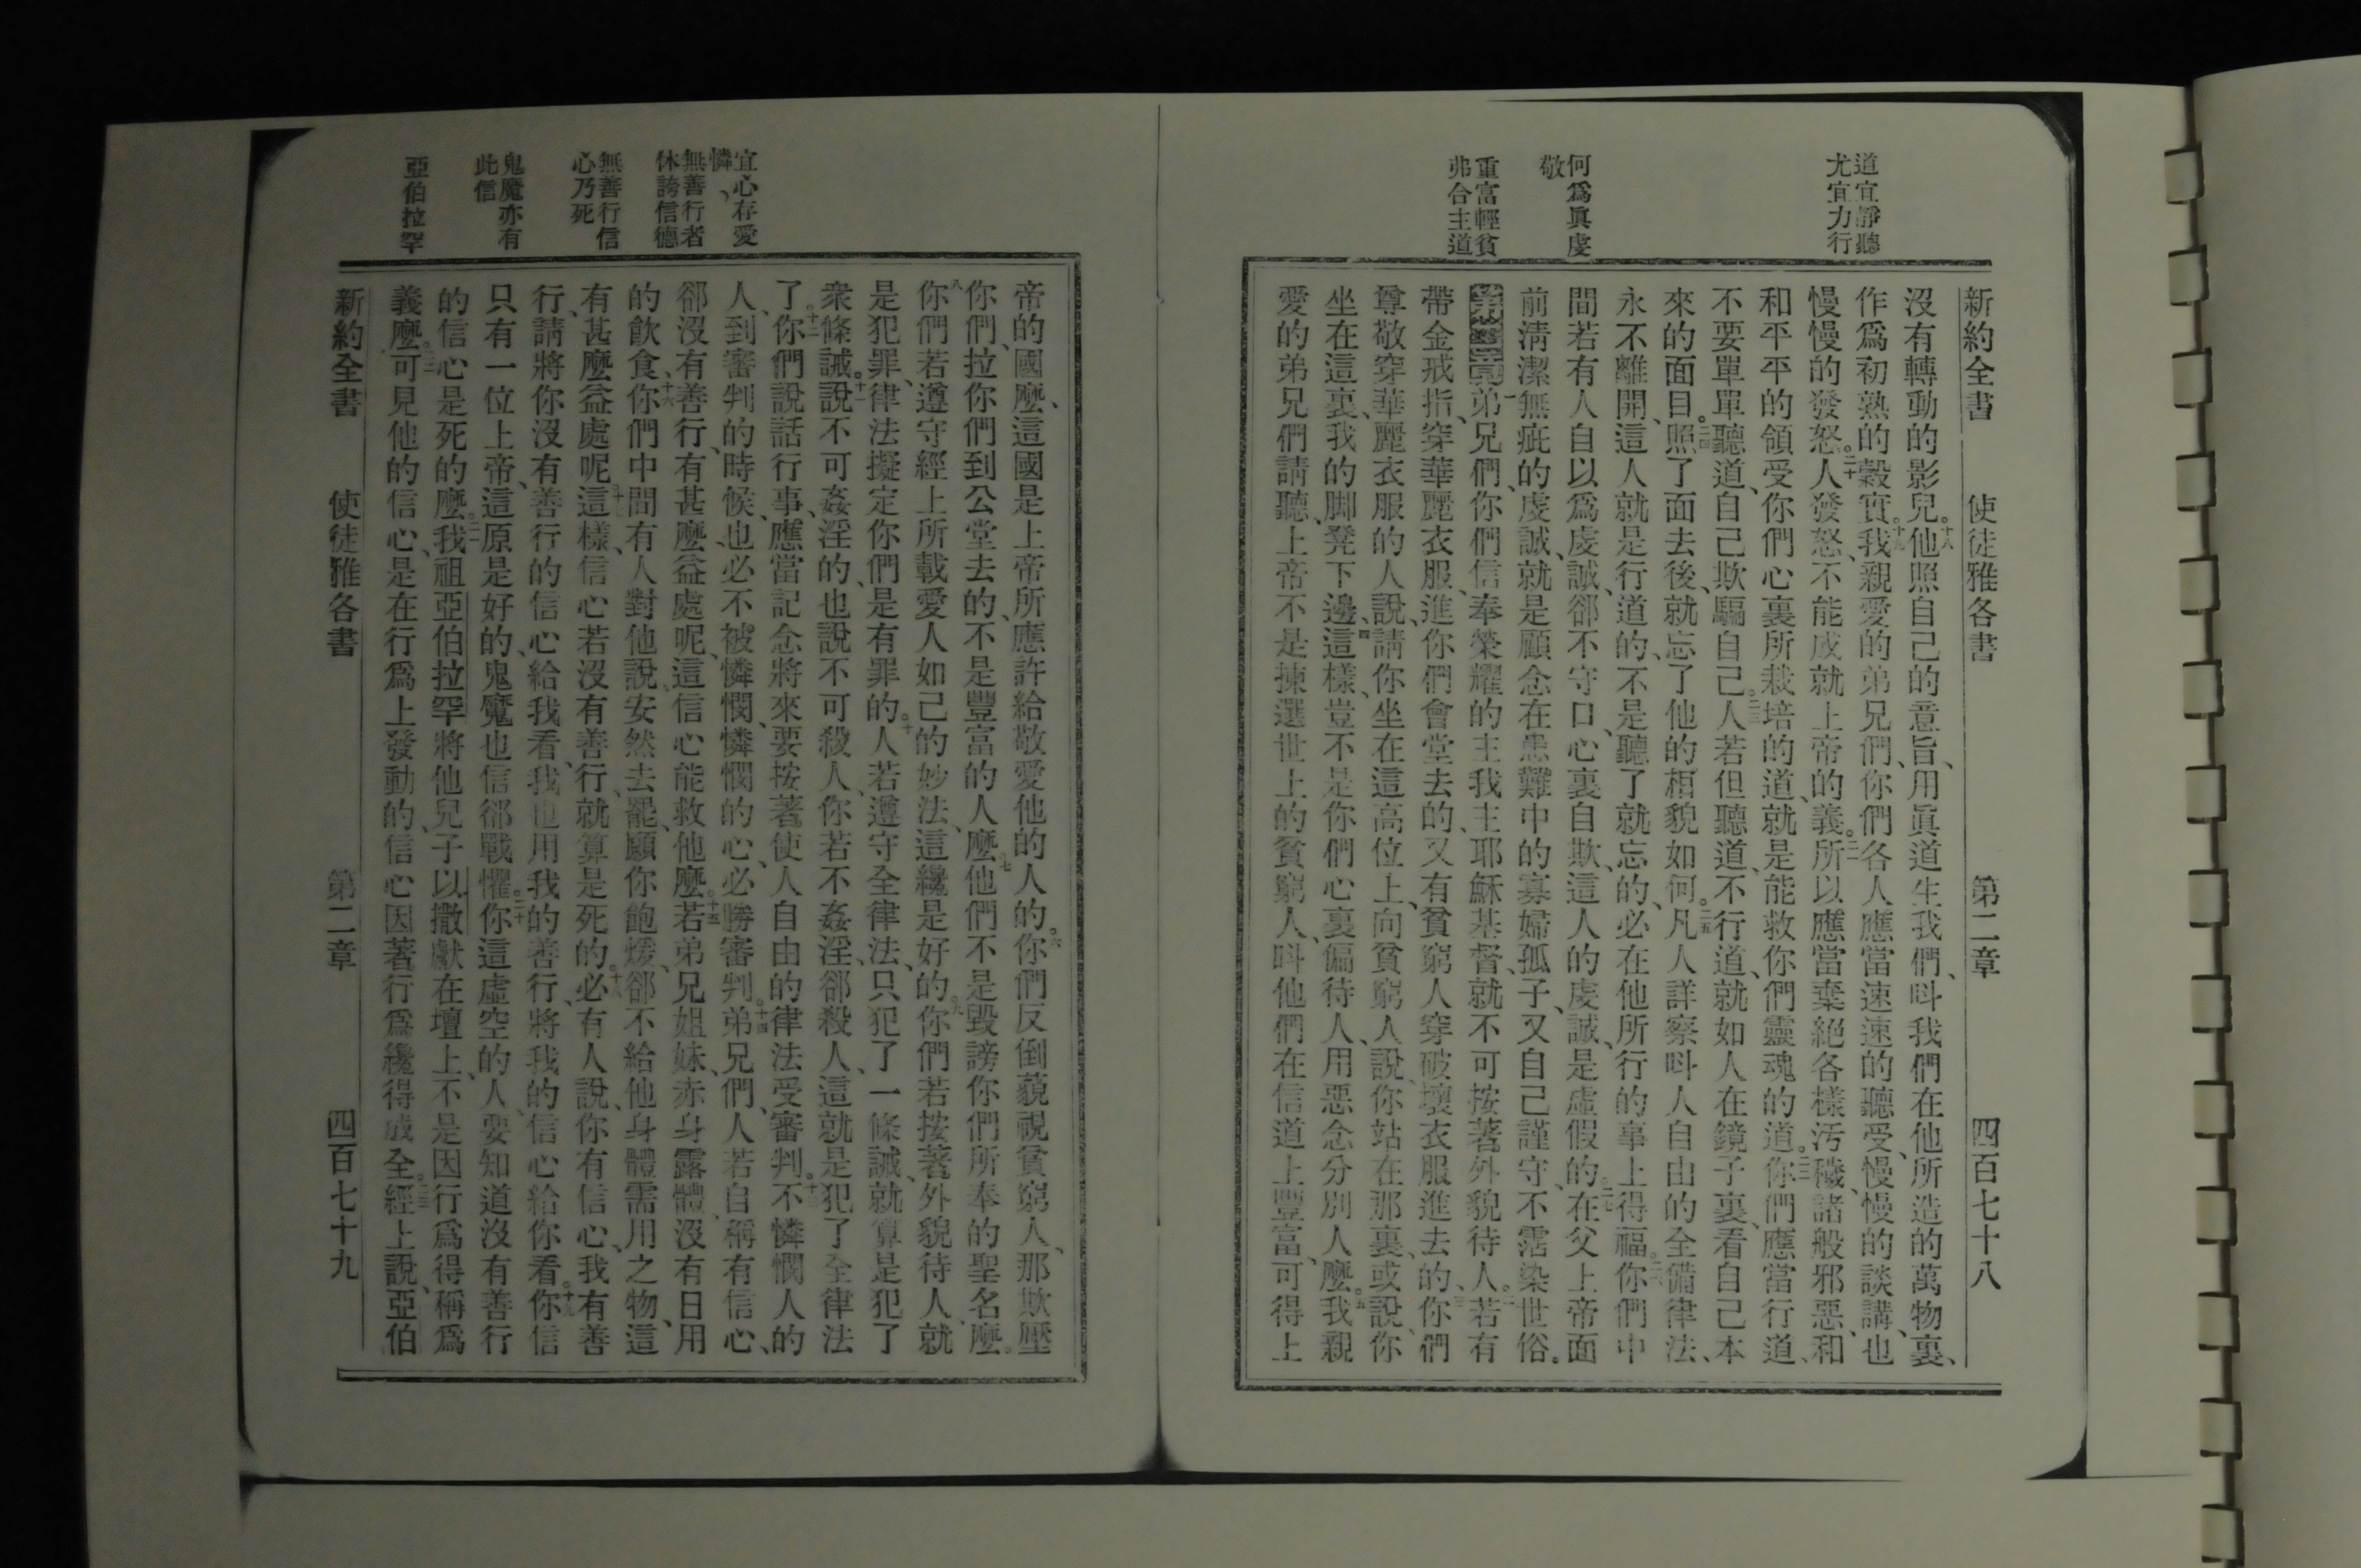 道宜靜聽
尤宜力行
何爲眞虔
敬
重富輕貧
弗合主道
新約全書 使徒雅各書 第二章 四百七十八
沒有轉動的影兒。十八他照自己的意旨、用眞道生我們、呌我們在他所造的萬物裏、
作爲初熟的穀實。十九我親愛的弟兄們、你們各人應當速速的聽受、慢慢的談講、也
慢慢的發怒。二十人發怒、不能成就上帝的義。二一所以應當棄絕各樣汚穢、諸般邪惡、和
和平平的領受你們心裏所栽培的道、就是能救你們靈魂的道。二二你們應當行道、
不要單單聽道、自己欺騙自己。二三人若但聽道、不行道、就如人在鏡子裏、看自己本
來的面目。二四照了面去後、就忘了他的相貌如何。二五凡人詳察呌人自由的全備律法、
永不離開、這人就是行道的、不是聽了就忘的、必在他所行的事上得福。二六你們中
間若有人自以爲虔誠、郤不守口、心裏自欺、這人的虔誠、是虛假的。二七在父上帝面
前淸潔無疵的虔誠、就是顧念在患難中的寡婦孤子、又自己謹守、不霑染世俗。
第二章一弟兄們、你們信奉榮耀的主我主耶穌基督、就不可按著外貌待人。二若有
帶金戒指、穿華麗衣服、進你們會堂去的、又有貧窮人穿破壞衣服進去的、三你們
尊敬穿華麗衣服的人、說、請你坐在這高位上、向貧窮人說、你站在那裏、或說、你
坐在這裏、我的脚凳下邊、四這樣、豈不是你們心裏偏待人、用惡念分別人麼。五我親
愛的弟兄們請聽、上帝不是揀選世上的貧窮人、呌他們在信道上豐富、可得上
宜心存愛
憐、
無善行者
休誇信德
無善行信
心乃死
鬼魔亦有
此信
亞伯拉罕
帝的國麼、這國是上帝所應許給敬愛他的人的。六你們反倒藐視貧窮人、那欺壓
你們、拉你們到公堂去的、不是豐富的人麼。七他們不是毀謗你們所奉的聖名麼。
八你們若遵守經上所載愛人如己的妙法、這纔是好的。九你們若按著外貌待人、就
是犯罪、律法擬定你們是有罪的。十人若遵守全律法、只犯了一條誡、就算是犯了
衆條誡。十一說不可姦淫的、也說不可殺人、你若不姦淫、郤殺人、這就是犯了全律法
了。十二你們說話行事、應當記念將來要按著使人自由的律法受審判。十三不憐憫人的
人、到審判的時候、也必不被憐憫、憐憫的心、必勝審判。十四弟兄們、人若自稱有信心、
郤沒有善行、有甚麼益處呢、這信心能救他麼。十五若弟兄姐妹、赤身露體、沒有日用
的飮食、十六你們中間有人對他說、安然去罷、願你飽煖、郤不給他身體需用之物、這
有甚麼益處呢。十七這樣、信心若沒有善行、就算是死的。十八必有人說、你有信心、我有善
行、請將你沒有善行的信心給我看、我也用我的善行、將我的信心給你看。十九你信
只有一位上帝、這原是好的、鬼魔也信郤戰懼。二十你這虛空的人、要知道沒有善行
的信心是死的麼。二一我祖亞伯拉罕將他兒子以撒獻在壇上、不是因行爲得稱爲
義麼。二二可見他的信心、是在行爲上發動的、信心因著行爲纔得成全。二三經上說、亞伯
新約全書 使徒雅各書 第二章 四百七十九